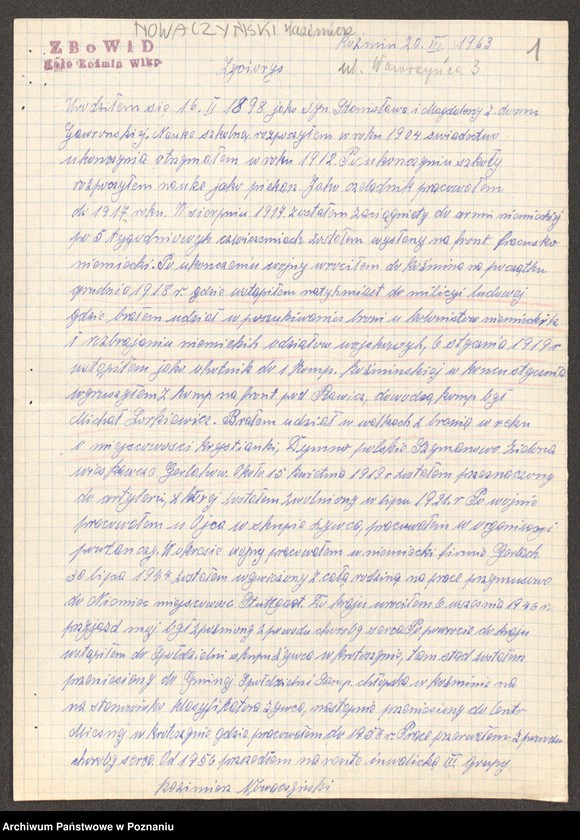 NOWACZYŃSKI Kazimierz
ZBoWiD
Koło Koźmin Wlkp.
Koźmin 20. III 1963
1
Życiorys
ul. Wawrzyńca 3
Urodziłem się 16. II 1898 jako syn Stanisława i Magdaleny z domu
Gawrońskiej. Nauke szkolną rozpocząłem w roku 1904 świadectwo
ukończynia otrzymałem w roku 1912. Po ukończyniu szkoły
rozpocząłem nauke jako piekarz. Jako czeladnik pracowałem
do 1917 roku. W sierpniu 1917 zostałem zaciągnięty do armi niemieckiej
po 5 tygodniowych czwiczeniach zostałem wysłany na front francusko
niemiecki. Po ukończeniu wojny wróciłem do Koźmina na początku
grudnia 1918 r. gdzie wstąpiłem natychmiast do milicyi ludowej
gdzie brałem udział w poszukiwaniu broni u kolonistów niemieckich
i rozbrajaniu niemieckich odziałów wojskowych, 6 stycznia 1919 r
wstąpiłem jako ohotnik do 1 Komp. Koźmińskiej w końcu stycznia
wyruszyłem z komp na front pod Rawicz, dowodzą komp był
Michał Brałem udział w walkach z bronią w ręku
o miejscowości Krystianki, Dymno polskie Szymanowo Zielona
wieś około 15 kwietnia 1919 r zostałem przeznaczony
do artylerii, z której zostałem zwolniony w lipcu 1921. r Po wojnie
pracowałem u Ojca w skupie żywca, pracowałem w organizacji
powstańczej. W okresie wojny pracowałem w niemiecki firmie Gerlach
30 lipca 1944 zostałem wywieziony z całą rodziną na prace przymusowe
do Niemiec miejscowość Stuttgart. Do kraju wróciłem 6 września 1946 r.
przyjazd mój był spóźniony z powodu choroby serca Po powrocie do kraju
wstąpiłem do Spółdzielni skupu żywca w Krotoszynie, tam stąd zostałem
przeniesiony do Gminnej Spółdzielni Samp. chłopska w Koźminie na
na stanowisko klasyfikatora żywca, następnie przeniesiony do Centr
Mięsnej w Krotoszynie gdzie pracowałem do 1956 r. Prace przerwałem z powodu
choroby serca. Od 1956 przeszedłem na rente inwalicką III Grupy
Kazimierz Nowaczyński
Archiwum Państwowe w Poznaniu